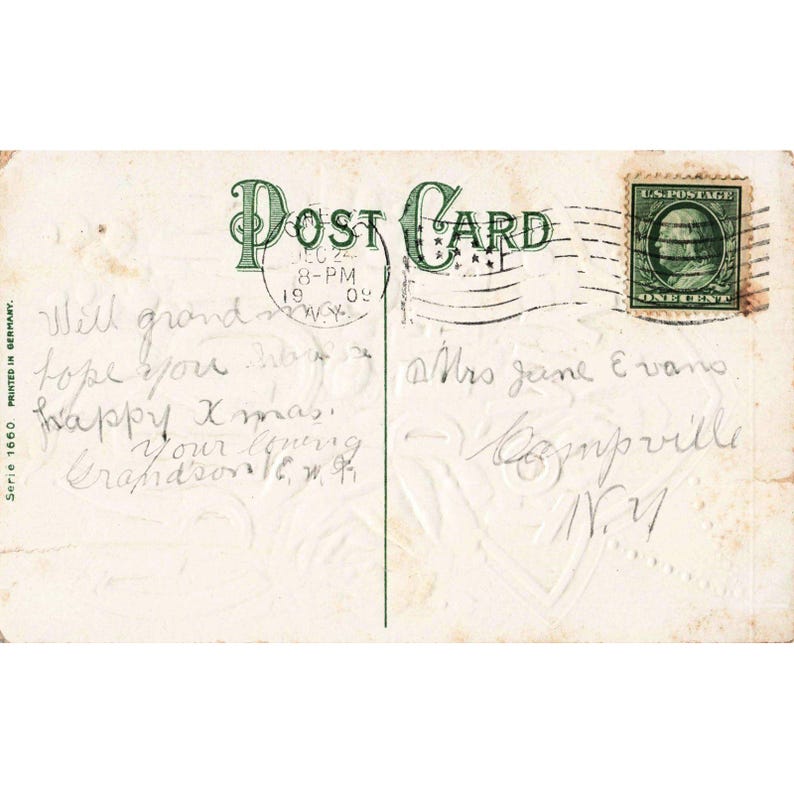 POST CARD
U.S. POSTAGE
ONE CENT
DEC 24
8-PM
1909
N.Y.
Well grandma
hope you have a
happy Xmas.
Your loving
Grandson E.
Mrs Jane Evans
Campville
N.Y
Serie 1660. PRINTED IN GERMANY.